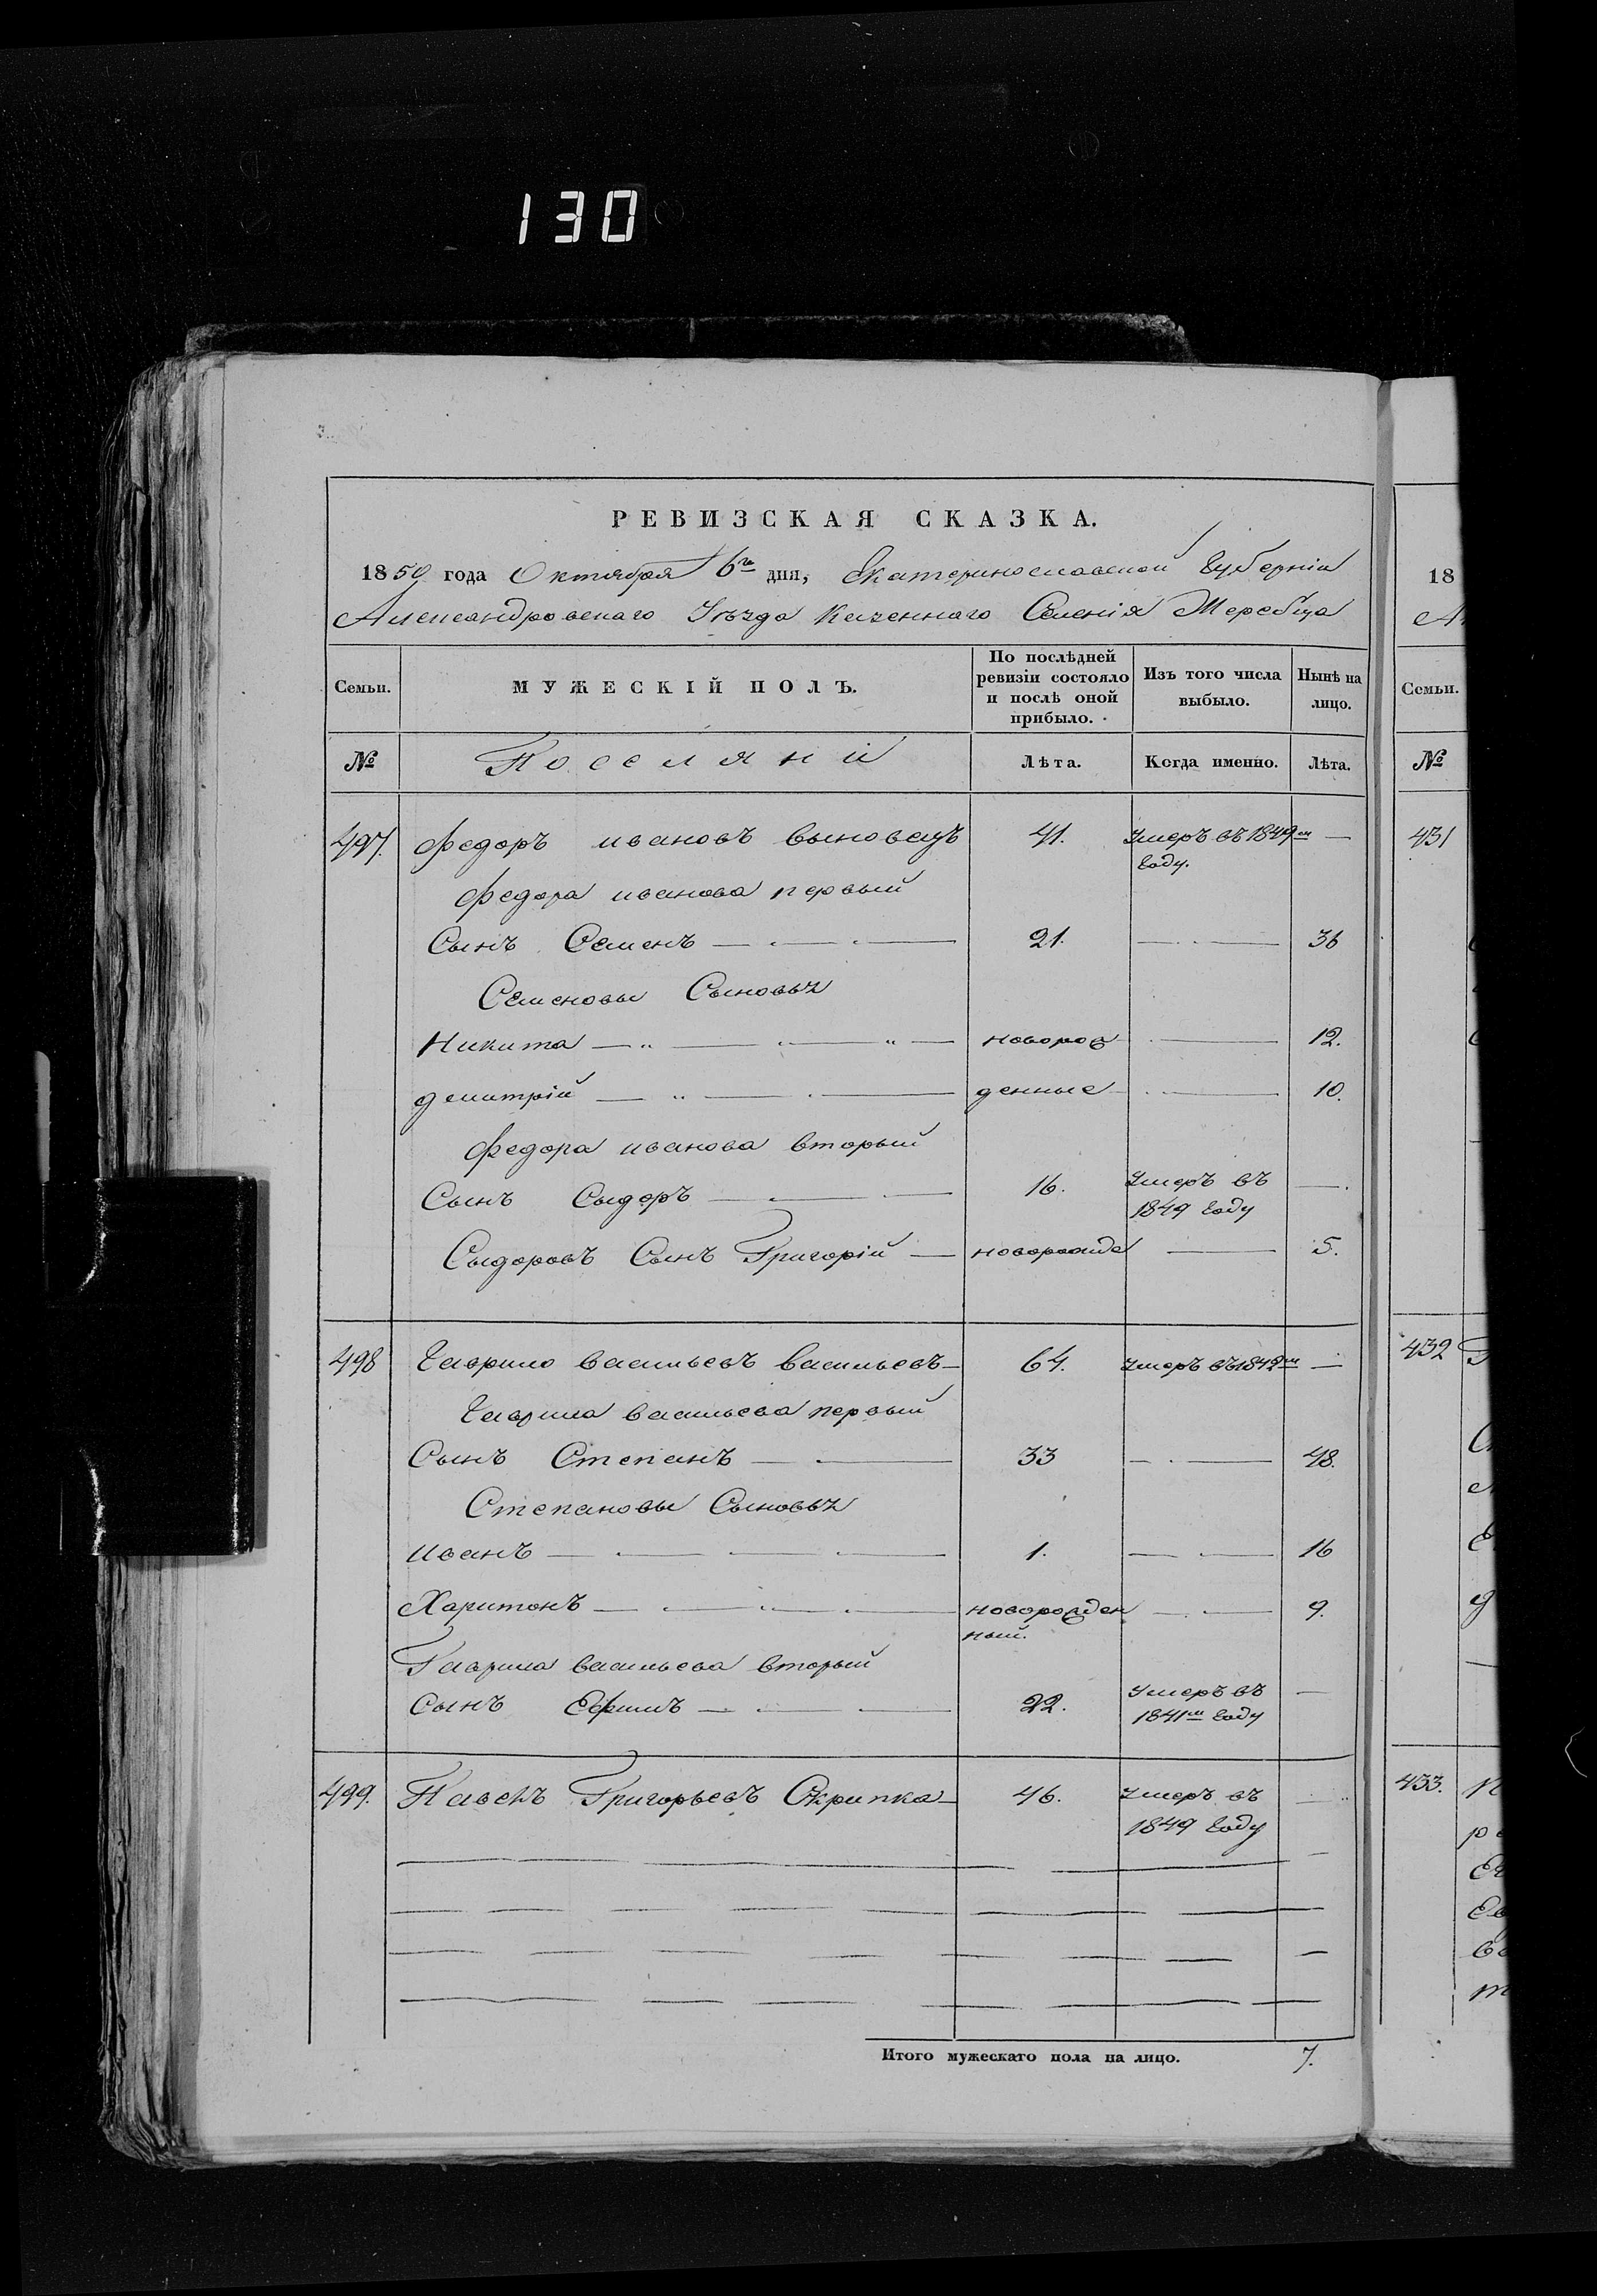 130
РЕВИЗСКАЯ СКАЗКА.
1850 года Октября 6го дня, Екатеринославской Губерніи
Александровскаго Уѣзда Казеннаго Селенія Жеребца
Семьи.
МУЖЕСКІЙ ПОЛЪ.
По послѣдней
ревизіи состояло
и послѣ оной
прибыло.
Изъ того числа
выбыло.
Нынѣ на
лицо.
№
Поселяни
Лѣта.
Когда именно.
Лѣта.
497. Федоръ ивановъ выновецъ 41. Умеръ въ 1849м —
году.
Федора иванова первый
Сынъ Семенъ — 21. — 36
Семеновы Сыновья
Никита — новорож — 12.
димитрій — денные — 10.
Федора иванова вторый
Сынъ Сыдоръ — 16. Умеръ въ —
1849 году
Сыдоровъ Сынъ Григорій — новорожде — 5.
498 Гаврило васильевъ васильевъ — 64. Умеръ въ 1849м —
Гаврила васильева первый
Сынъ Степанъ — 33 — 48.
Степановы Сыновья
иванъ — 1. — 16
Харитонъ — новорожден — 9.
ный.
Гаврила васильева вторый
Сынъ Ефимъ — 22. Умеръ въ —
1841м году
499. Павелъ Григорьевъ Скрипка — 46. Умеръ въ —
1849 году
Итого мужескаго пола на лицо. 7.
18
Семьи.
№
431
432
433.